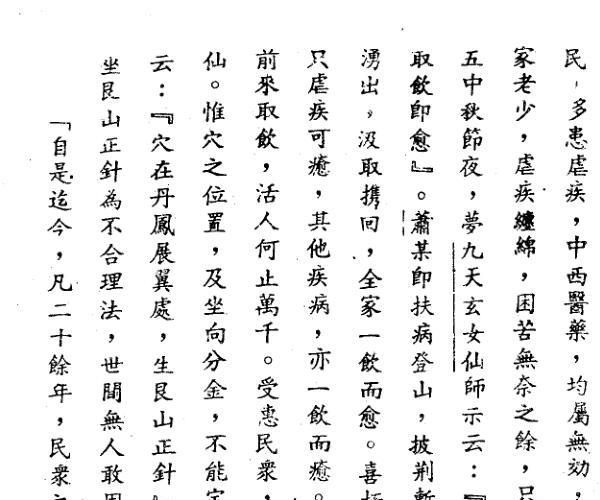 民，多患虐疾，中西醫藥，均屬無効，
家老少，虐疾纏綿，困苦無奈之餘，只
五中秋節夜，夢九天玄女仙師示云：『
取飲即愈』。蕭某即扶病登山，披荆斬
湧出，汲取携回，全家一飲而愈。喜極
只虐疾可癒，其他疾病，亦一飲而癒。
前來取飲，活人何止萬千。受惠民衆，
仙。惟穴之位置，及坐向分金，不能
云：『穴在丹鳳展翼處，生艮山正針』
坐艮山正針為不合理法，世間無人敢用
「自是迄今，凡二十餘年，民衆